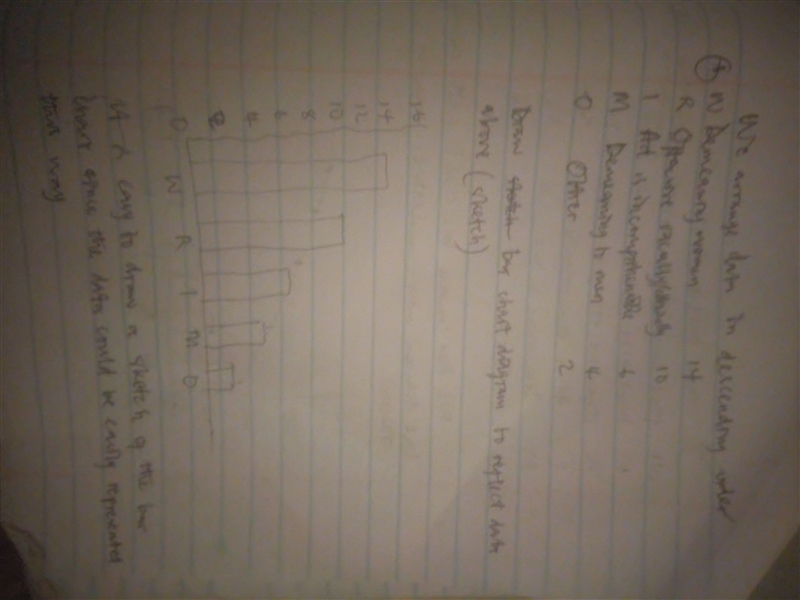 We arrange data in descending order
(4) W Demeaning women 14
R Offensive racially/ethnically 10
I Ad is incomprehensible 6
M Demeaning to men 4
O Other 2
Draw bar chart diagram to reflect data
above (sketch)
16
14
12
10
8
6
4
2
0 W R I M O
It is easy to draw a sketch of the bar
chart since the data could be easily represented
this way